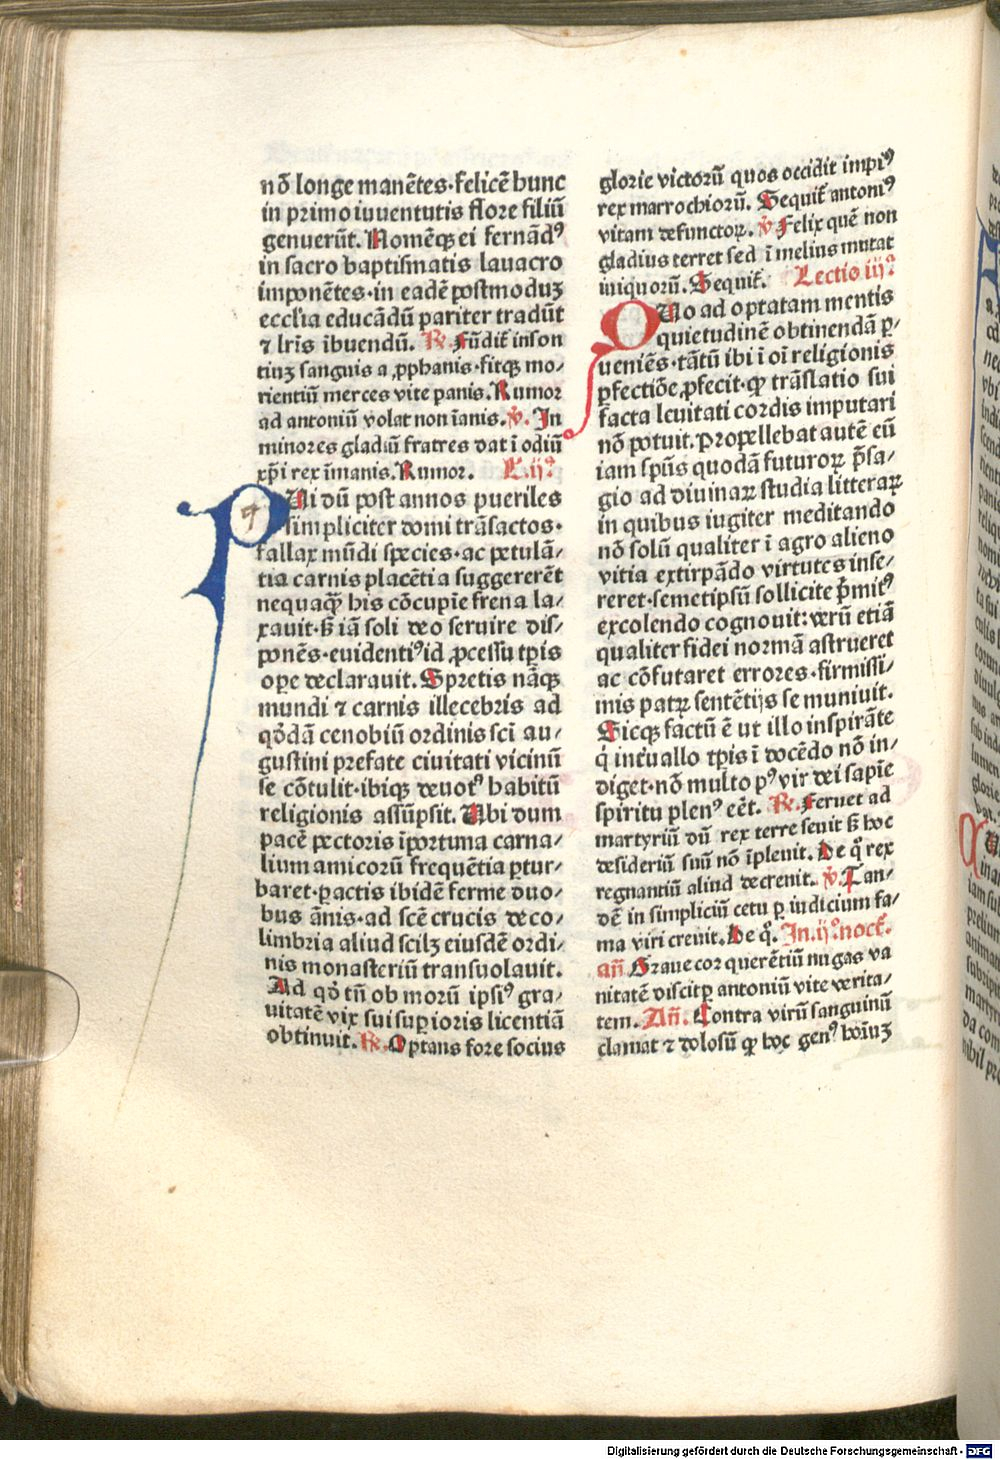 nō longe manētes·felicē hunc
in primo iuuentutis flore filiū
genuerūt. Nomēqꝫ ei fernādꝰ
in sacro baptismatis lauacro
imponētes·in eadē postmoduꝫ
eccl'ia educādū pariter tradūt
⁊ lr̄is ībuendū. ℟. Fūdit̄ inson
tiuꝫ sanguis a ꝓphanis·fitqꝫ mo⸗
rientiū merces vite panis. Rumor
ad antoniū volat non īanis. ℣. In
minores gladiū fratres dat ī odiū
xp̄i rex īmanis. Rumor. L.ijª
PUi dū post annos pueriles
simpliciter domi trāsactos·
fallax mūdi species·ac petulā⸗
tia carnis placētia suggererēt
nequaqꝫ̄ his cōcupīe frena la⸗
xauit·sꝫ iā soli deo seruire dis⸗
ponēs·euidentiꝰ id ꝓcessu tp̄is
oꝑe declarauit. Spretis nāqꝫ
mundi ⁊ carnis illecebris ad
qōdā cenobiū ordinis scī au⸗
gustini prefate ciuitati vicinū
se cōtulit·ibiqꝫ deuotꝰ habitū
religionis assūpsit. Ubi dum
pacē pectoris īportuna carna⸗
lium amicorū frequētia ꝑtur⸗
baret·ꝑactis ibidē ferme duo⸗
bus ānis·ad scē crucis de co⸗
limbria aliud scilꝫ eiusdē ordi⸗
nis monasteriū transuolauit.
Ad qō tn̄ ob morū ipsiꝰ gra⸗
uitatē vix sui suꝑioris licentiā
obtinuit. ℟. Optans fore socius
glorie victorū quos occidit impiꝰ
rex marrochiorū. Sequit̄ antoniꝰ
vitam defunctoꝝ. ℣. Felix quē non
gladius terret sed ī melius mutat
iniquorū. Sequit̄. Lectio iijª
QUo ad optatam mentis
quietudinē obtinendā ꝑ⸗
ueniēs·tātū ibi ī oi̅ religionis
ꝑfectiōe ꝓfecit·qꝙ trāslatio sui
facta leuitati cordis imputari
nō potuit. Propellebat autē eū
iam spūs quodā futuroꝝ p̄sa⸗
gio ad diuinaꝝ studia litteraꝝ
in quibus iugiter meditando
nō solū qualiter ī agro alieno
vitia extirpādo virtutes inse⸗
reret·semetipsū sollicite p̄mitꝰ
excolendo cognouit: verū etiā
qualiter fidei normā astrueret
ac cōfutaret errores·firmissi⸗
mis patꝝ sentētijs se muniuit.
Sicqꝫ factū ē ut illo inspirāte
q' int̄uallo tp̄is ī docēdo nō in⸗
diget·nō multo pꝰ vir dei sapīe
spiritu plenꝰ ee̅t. ℟. Feruet ad
martyriū dū rex terre seuit sꝫ hoc
desideriū suū nō īpleuit. De q̊ rex
regnantiū aliud decreuit. ℣. Tan⸗
dē in simpliciū cetu ꝑ iudicium fa⸗
ma viri creuit. De q̊. In.ijº.noct̄.
an̄ Graue cor querētiū nugas va
nitatē discitꝑ antoniū vite verita⸗
tem. An̄. Contra virū sanguinū
clamat ⁊ dolosū qꝙ hoc genꝰ hoīuꝫ
Digitalisierung gefördert durch die Deutsche Forschungsgemeinschaft - DFG